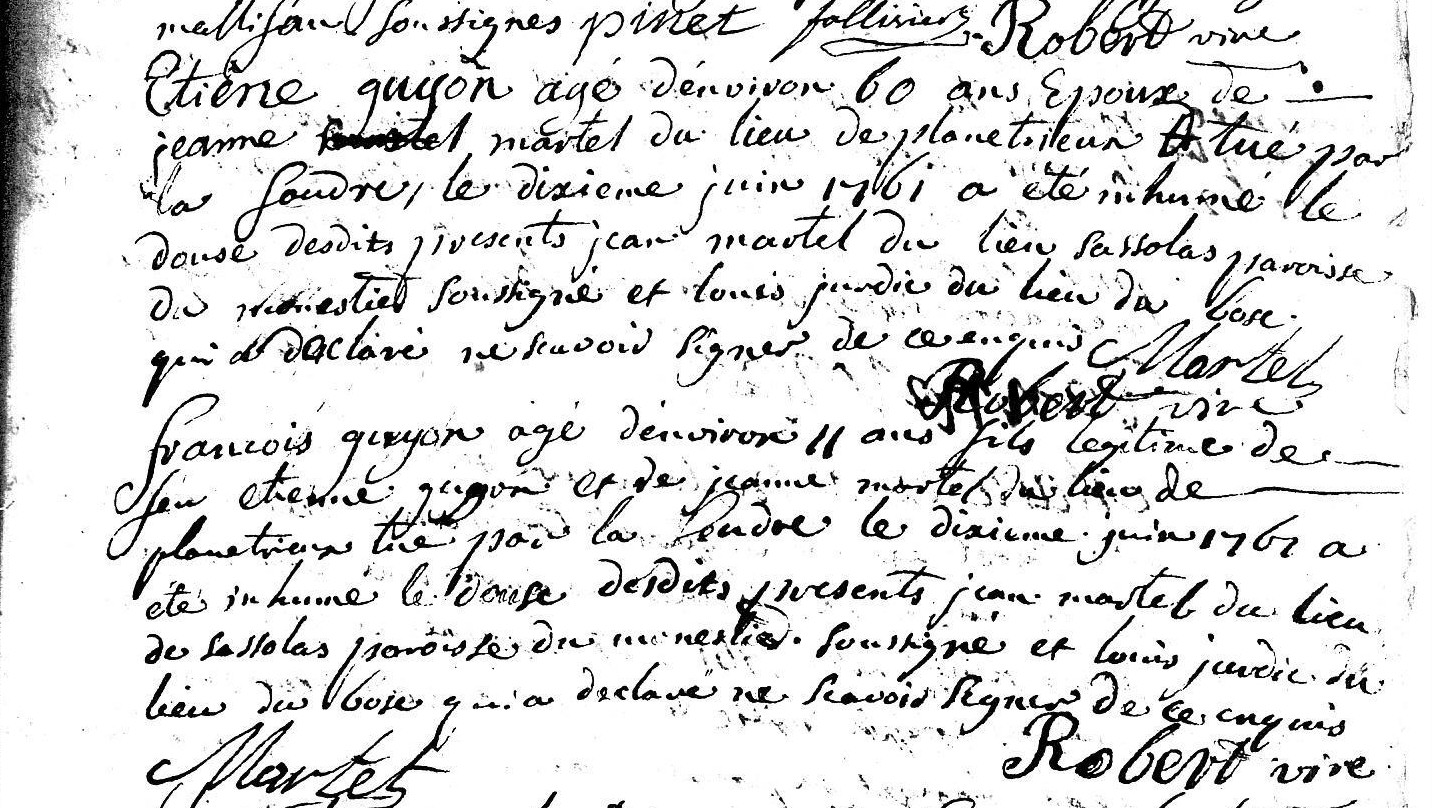 mallisau soussignes pinet follivier Robert vire
Etiene guyon agé dénviron 60 ans Epoux de
jeanne martel du lieu de planetrieux tué par
la foudre, le dixieme juin 1761 a été inhumé le
douse desdits presents jean martel du lieu sassolas paroisse
du monestier soussigné et louis jurdic du lieu du bosc
qui a declaré ne scavoir signer de ce enquis Martel
Robert vire
francois guyon agé dénviron 11 ans fils legitime de
feu etienne guyon et de jeanne martel du lieu de
planetrieux tué par la foudre le dixieme juin 1761 a
été inhumé le douse desdits presents jean martel du lieu
de sassolas paroisse du monestier soussigné et louis jurdic du
lieu du bosc qui a declaré ne scavoir signer de ce enquis
Martel Robert vire